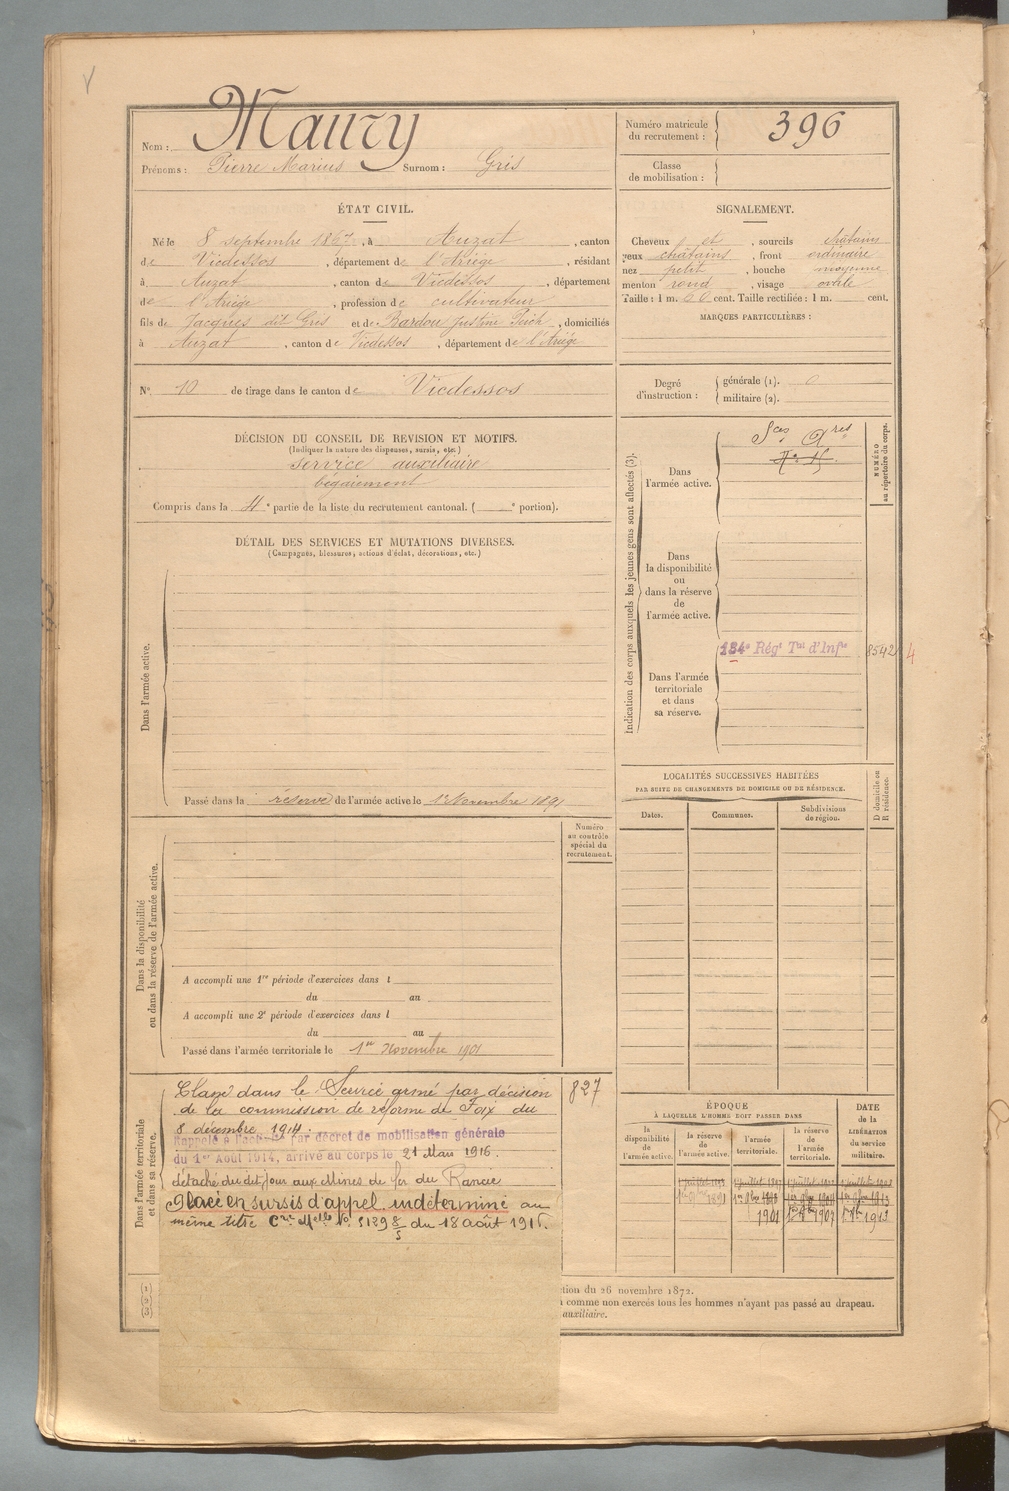 Nom : Maury
Prénoms : Pierre Marius Surnom : Gris
Numéro matricule
du recrutement : 396
Classe
de mobilisation :
ÉTAT CIVIL.
Né le 8 septembre 1867, à Auzat, canton
de Vicdessos, département de l'Ariège, résidant
à Auzat, canton de Vicdessos, département
de l'Ariège, profession de cultivateur
fils de Jacques dit Gris et de Bardou Justine Puich, domiciliés
à Auzat, canton de Vicdessos, département de l'Ariége
SIGNALEMENT.
Cheveux et, sourcils châtains
yeux châtains, front ordinaire
nez petit, bouche moyenne
menton rond, visage ovale
Taille : 1 m. cent. Taille rectifiée : 1 m. cent.
MARQUES PARTICULIÈRES :
N° 10 de tirage dans le canton de Vicdessos
Degré
d'instruction :
générale (1). 0
militaire (2).
DÉCISION DU CONSEIL DE REVISION ET MOTIFS.
(Indiquer la nature des dispenses, sursis, etc.)
service auxiliaire
bégaiement
Compris dans la 4e partie de la liste du recrutement cantonal. ( e portion).
DÉTAIL DES SERVICES ET MUTATIONS DIVERSES.
(Campagnes, blessures, actions d'éclat, décorations, etc.)
Dans l'armée active.
Passé dans la réserve de l'armée active le 1er Novembre 1891
Dans la disponibilité
ou dans la réserve de l'armée active.
Numéro
au contrôle
spécial du
recrutement.
A accompli une 1re période d'exercices dans l
du au
A accompli une 2e période d'exercices dans l
du au
Passé dans l'armée territoriale le 1er Novembre 1901
Dans l'armée territoriale
et dans sa réserve.
Classé dans le Service armé par décision
de la commission de réforme de Foix du
8 décembre 1914.
827
Rappelé à l'activité par décret de mobilisation générale
du 1er Août 1914, arrivé au corps le 21 Mars 1916.
détaché du dit jour aux Mines de fer du Rancié
Placé en sursis d'appel indéterminé au
même titre du 18 août 191
Indication des corps auxquels les jeunes gens sont affectés (3).
Dans
l'armée active.
Sces Ares
NUMÉRO
au répertoire du corps.
Dans
la disponibilité
ou
dans la réserve
de
l'armée active.
Dans l'armée
territoriale
et dans
sa réserve.
134e Régt Tal d'Infie
8542 4
LOCALITÉS SUCCESSIVES HABITÉES
PAR SUITE DE CHANGEMENTS DE DOMICILE OU DE RÉSIDENCE.
Dates.
Communes.
Subdivisions
de région.
D domicile ou
R résidence.
ÉPOQUE
À LAQUELLE L'HOMME DOIT PASSER DANS
la
disponibilité
de
l'armée active.
la réserve
de
l'armée active.
l'armée
territoriale.
la réserve
de
l'armée
territoriale.
DATE
de la
LIBÉRATION
du service
militaire.
1901 1907 1913
(1)
(2)
(3)
ction du 26 novembre 1872.
comme non exercés tous les hommes n'ayant pas passé au drapeau.
auxiliaire.